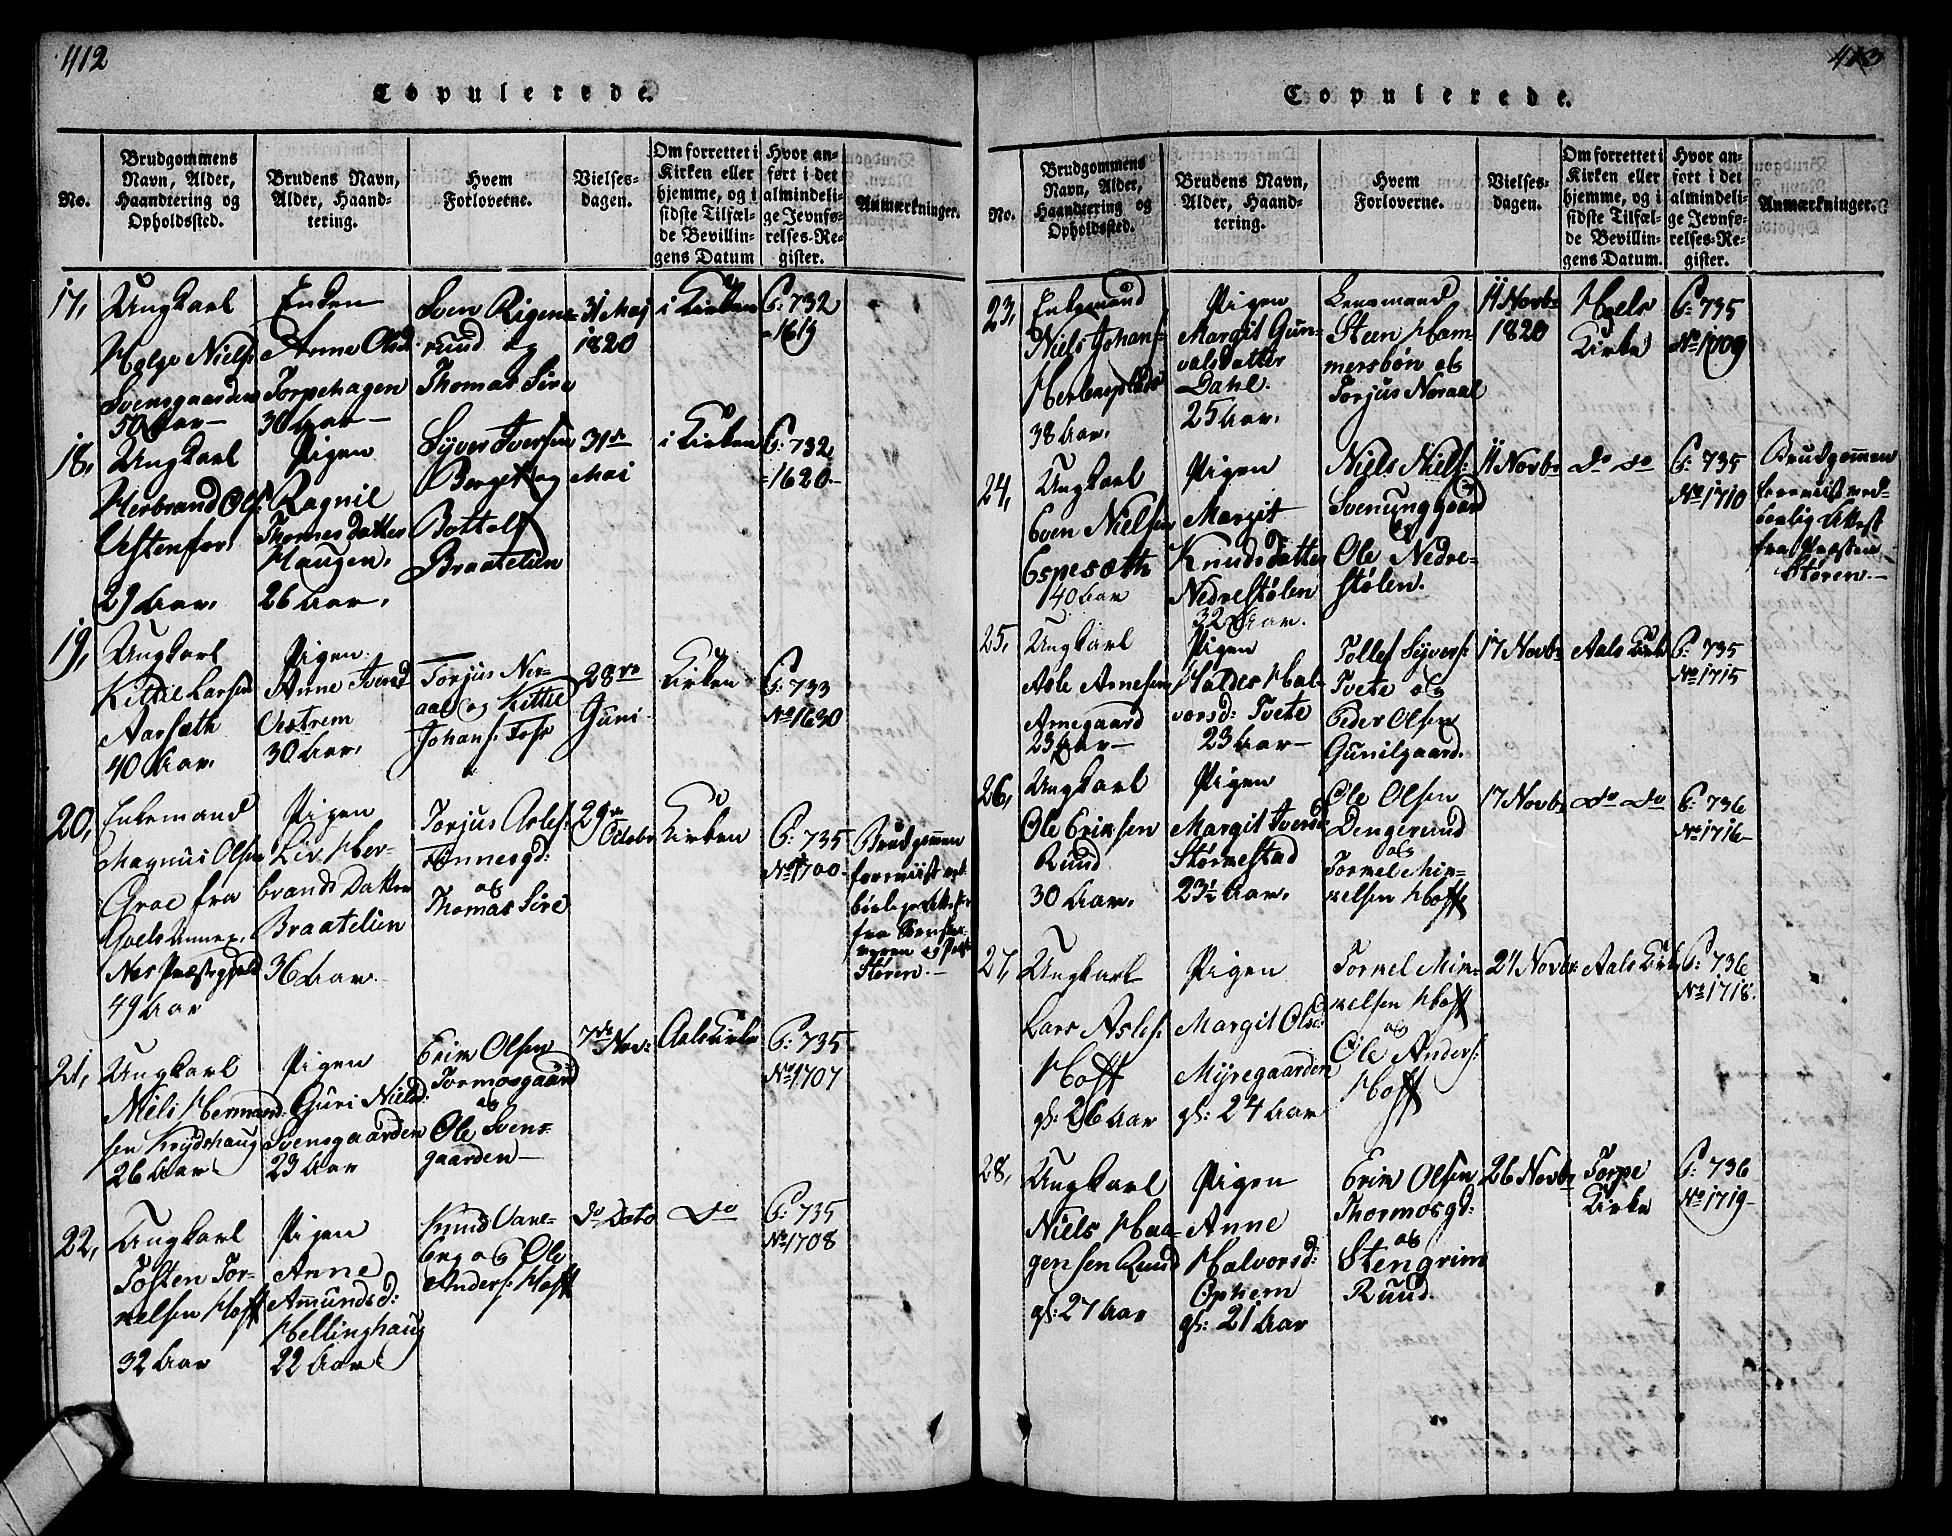 412
Copulerede.
No.
Brudgommens Navn, Alder, Haandtering og Opholdssted.
Brudens Navn, Alder, Haandtering.
Hvem Forlovetne.
Vielsesdagen.
Om forrettet i Kirken eller hjemme, og i sidste Tilfælde Bevillingens Datum
Hvor anført i det almindelige Jevnførelses-Register.
Anmærkninger.
17,
Ungkarl
Helge Niels:
Svensgaarden
50 Aar
Enken
Anne Olsd:
Torpehagen
30 Aar
Sven Rigene-
rud og
Thomas Sire
31 Maj
1820
i Kirken
P: 732
1619
18,
Ungkarl
Herbrand Ols:
Østenfor
29 Aar.
Pigen
Ragnil
Thomesdatter
Haugen.
26 Aar.
Syver Iversen
Berget og
Bottolf
Braatelien
31te
Mai
i Kirken
P: 732
1620.
19,
Ungkarl
Kittil Larsen
Aarseth
40 Aar.
Pigen
Anne Iversd
Østrem
30 Aar.
Torjus Nor-
aal og Kittil
Johans: Foss
28de
Juni
Kirken
P: 733
No 1630
20,
Enkemand
Magnus Olsen
Groe fra
Goels Annex,
Nes Præstegjeld
49 Aar
Pigen
Liv Her-
brands Datter
Braatelien
36 Aar
Torjus Asles:
Tinnesgd:
og
Thomas Sire
29de
Octobr
Kirken
P: 735
No 1700.
Brudgommen
foreviist
fra
Støren.
21,
Ungkarl
Niels Hermand-
sen Krydshaug
26 Aar
Pigen
Guri Nielsd:
Svensgaarden
23 Aar
Erik Olsen
Tormosgaard
og
Ole Svens-
gaarden
7de Nov:
Aals Kirke
P: 735
No 1707
22,
Ungkarl
Tosten Tor-
kelsen Hoff
32 Aar
Pigen
Anne
Amundsd:
Hellinghaug
22 Aar
Knud Vare-
berg og Ole
Anders: Hoff
do Dato
do
P: 735
No 1708
413
Copulerede.
No.
Brudgommens Navn, Alder, Haandtering og Opholdssted.
Brudens Navn, Alder, Haandtering.
Hvem Forloverne.
Vielsesdagen.
Om forrettet i Kirken eller hjemme, og i sidste Tilfælde Bevillingens Datum.
Hvor anført i det almindelige Jevnførelses-Register.
Anmærkninger.
23,
Enkemand
Niels Johans:
38 Aar.
Pigen
Margit Gun-
valsdatter
Dahl.
25 Aar.
Lensmand
Steen Ham-
mersbøn og
Torjus Noraal
11 Novbr
1820
Hols
Kirke
P: 735
No 1709
24,
Ungkarl
Even Nielsen
Espesæth
40 Aar
Pigen
Margit
Knudsdatter
Nedrestølen
32 Aar.
Niels Niels:
Svenunggaard
og
Ole Nedre-
stølen.
11 Novbr
do do
P: 735
No 1710
Brudgommen
foreviist ved-
børlig Attest
fra Præsten
Støren.
25,
Ungkarl
Asle Arnesen
Arnegaard
23 Aar
Pigen
Haldes Hal-
vorsd: Tvete
23 Aar
Tollef Syvers:
Tvete og
Peder Olsen
Gunilgaard.
17 Novbr
Aals Kirke
P: 735
No 1715
26,
Ungkarl
Ole Eriksen
Ruud
30 Aar.
Pigen
Margit Iversd
Størkestad
23½ Aar.
Ole Olsen
Dengerud
og
Torkel Mik-
kelsen Hoff
17 Novbr
do do
P: 736
No 1716
27,
Ungkarl
Lars Asles:
Hoff
gl: 26 Aar
Pigen
Margit Olsd:
Myregaarden
gl: 24 Aar
Torkel Mik-
kelsen Hoff
og
Ole Anders:
Hoff
24 Novbr
Aals Kirke
P: 736
No 1718.
28,
Ungkarl
Niels Haa-
gensen Ruud
gl: 27 Aar
Pigen
Anne
Halvorsd:
Ophem
gl: 21 Aar
Erik Olsen
Thormosgd:
og
Stengrim
Ruud.
26 Novbr
Torpe
Kirke
P: 736
No 1719